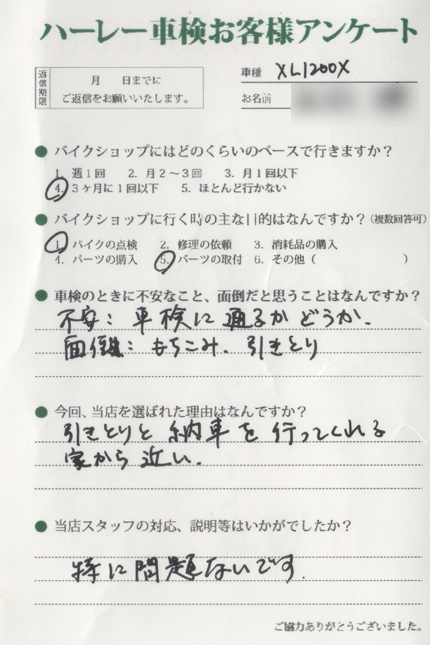 ハーレー車検お客様アンケート
返信期限
月 日までに
ご返信をお願いいたします。
車種 XL1200X
お名前
● バイクショップにはどのくらいのペースで行きますか?
1. 週1回 2. 月2〜3回 3. 月1回以下
4. 3ヶ月に1回以下 5. ほとんど行かない
● バイクショップに行く時の主な目的はなんですか?(複数回答可)
1. バイクの点検 2. 修理の依頼 3. 消耗品の購入
4. パーツの購入 5. パーツの取付 6. その他( )
● 車検のときに不安なこと、面倒だと思うことはなんですか?
不安: 車検に通るかどうか.
面倒: もちこみ. 引きとり
● 今回、当店を選ばれた理由はなんですか?
引きとりと納車を行ってくれる
家から近い.
● 当店スタッフの対応、説明等はいかがでしたか?
特に問題ないです.
ご協力ありがとうございました。